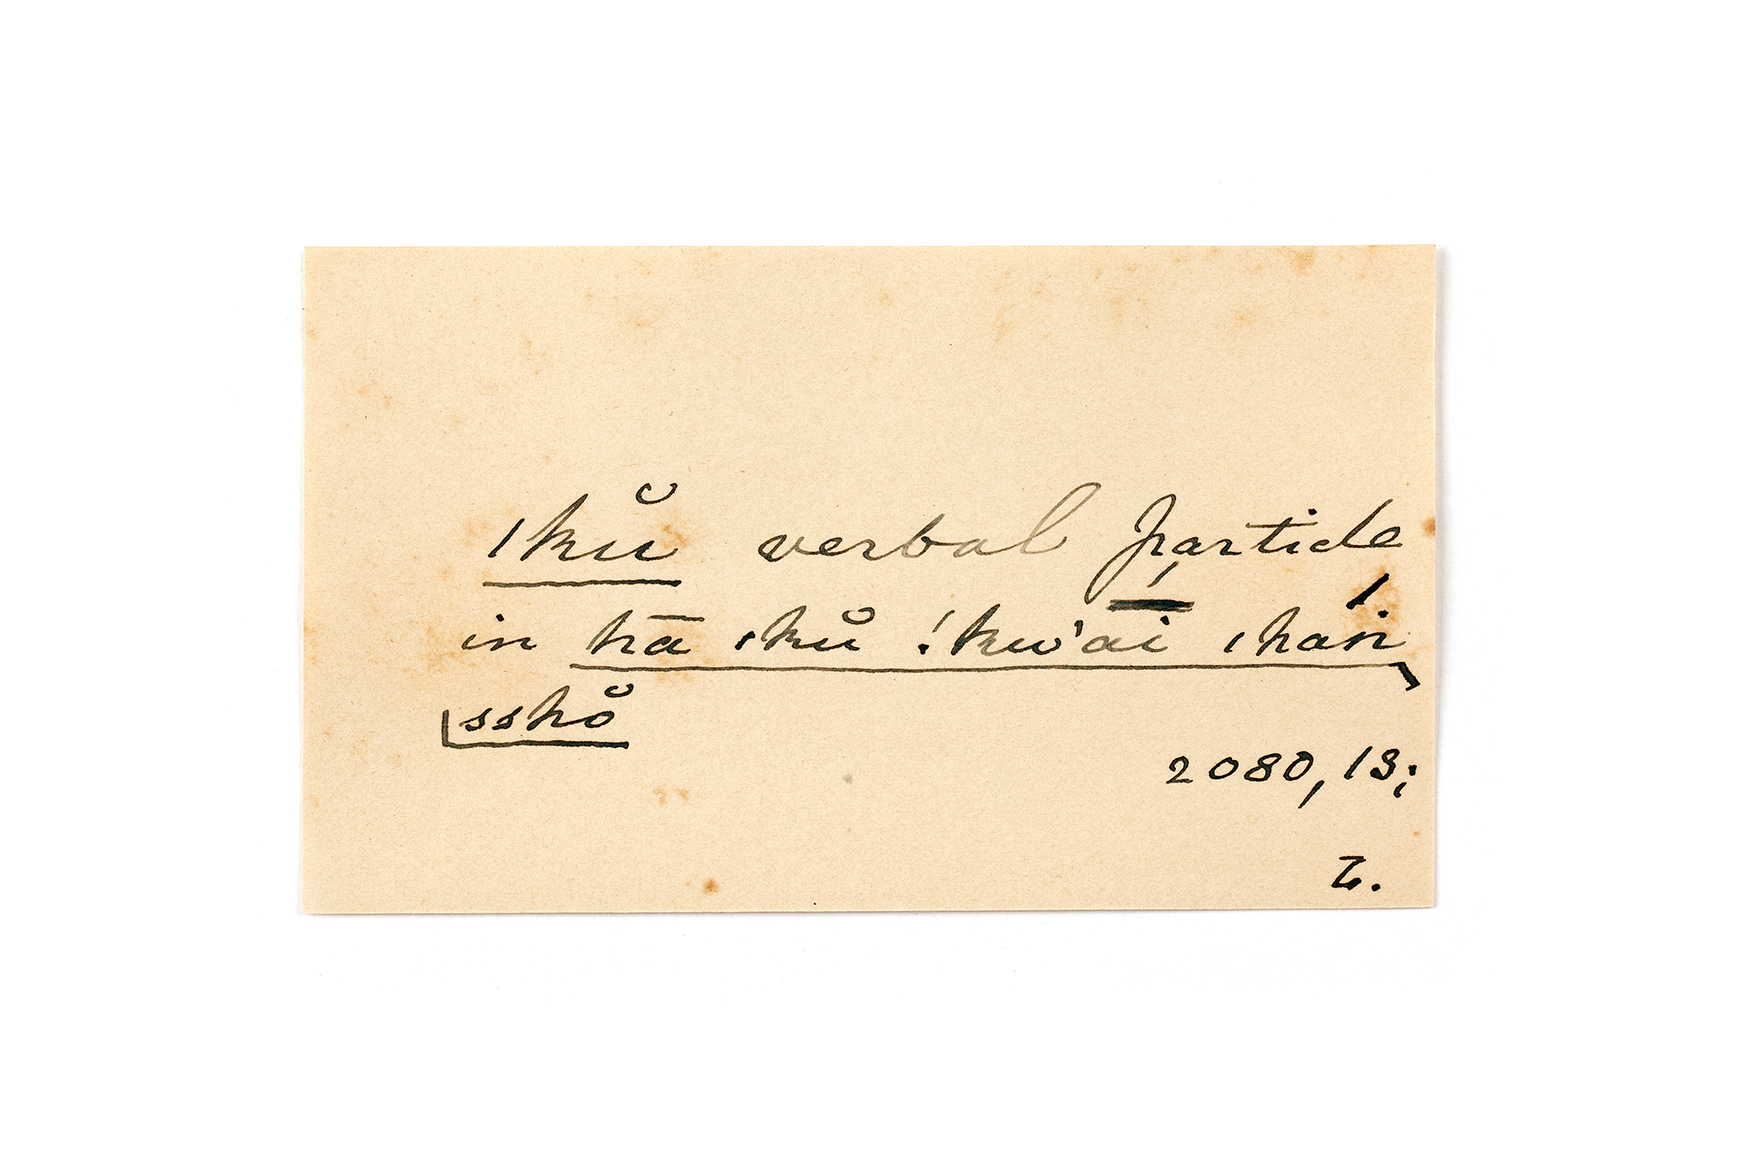 ˌkŭ verbal particle
in hā ˌkŭ !kw'ai ˌhan
sshŏ
2080, 13;
L.